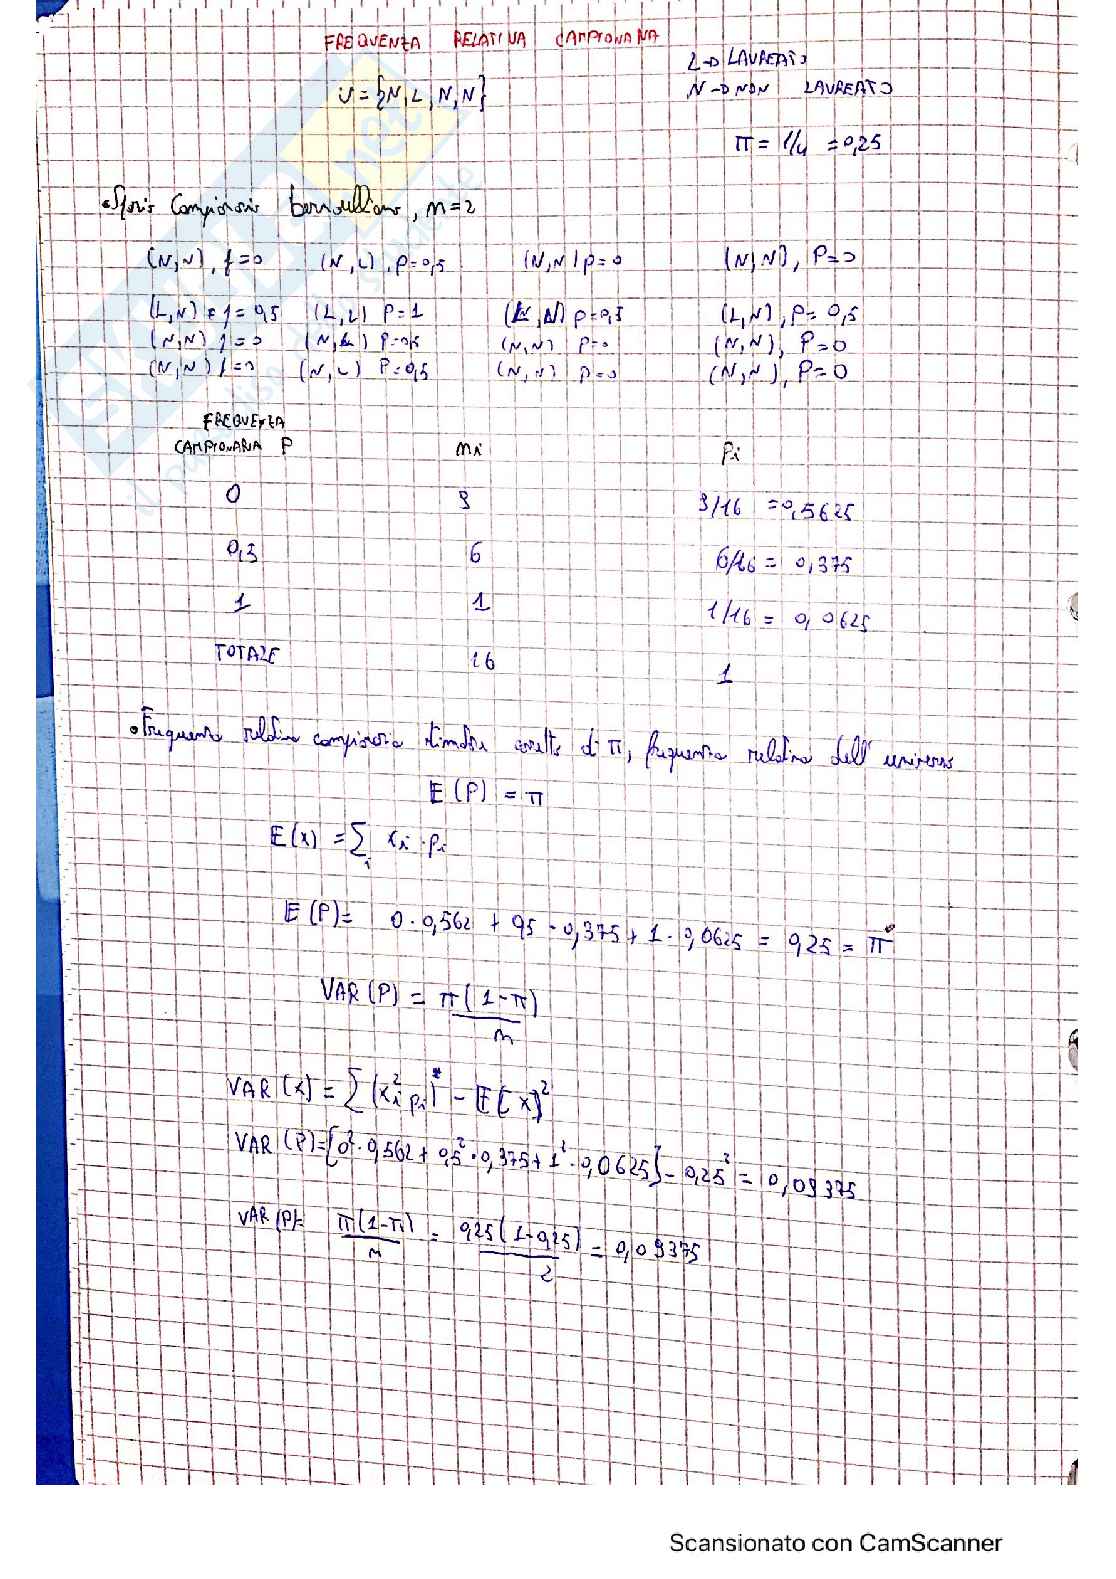 FREQUENZA RELATIVA CAMPIONARIA
L → LAUREATO
U = {N, L, N, N}
N → NON LAUREATO
π = 1/4 = 0,25
• Spazio Campionario bernoulliano, n=2
(N,N), f=0 (N,L), p=0,5 (N,N) p=0 (N,N), P=0
(L,N) f=0,5 (L,L) P=1 (L,N) p=0,5 (L,N), P=0,5
(N,N) f=0 (N,L) P=0,5 (N,N) P=0 (N,N), P=0
(N,N) f=0 (N,L) P=0,5 (N,N) P=0 (N,N), P=0
FREQUENZA
CAMPIONARIA P ni Pi
0 9 9/16 = 0,5625
0,5 6 6/16 = 0,375
1 1 1/16 = 0,0625
TOTALE 16 1
• Frequenza relativa campionaria stimatore corretto di π, frequenza relativa dell' universo
E (P) = π
E(x) = ∑i xi · pi
E (P) = 0 · 0,562 + 0,5 · 0,375 + 1 · 0,0625 = 0,25 = π
VAR (P) = π(1-π)
n
VAR (x) = ∑ (xi² pi) - E[x]²
VAR (P) = [0² · 0,562 + 0,5² · 0,375 + 1² · 0,0625] - 0,25² = 0,09375
VAR (P) = π(1-π) / n = 0,25(1-0,25) / 2 = 0,09375
Scansionato con CamScanner